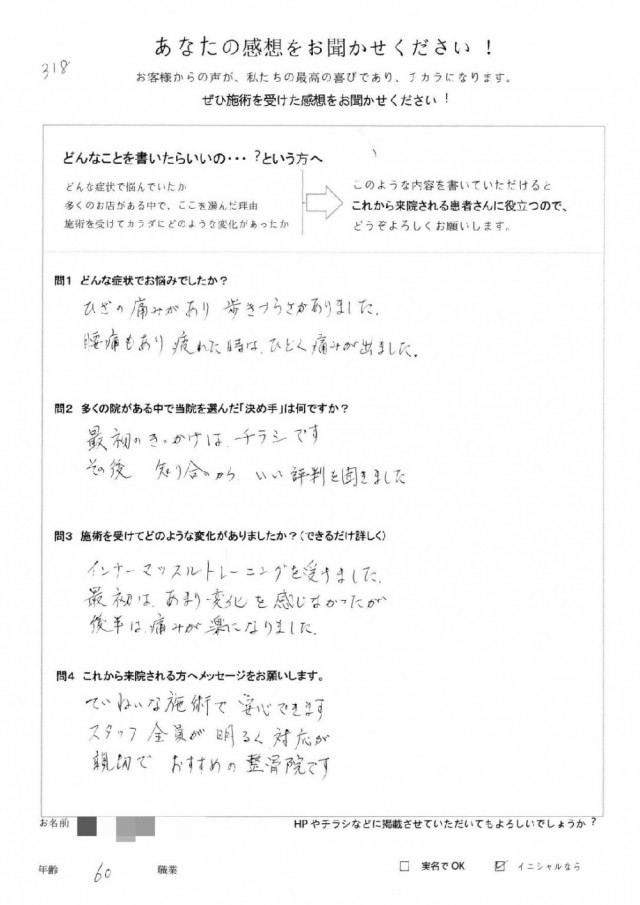 318
あなたの感想をお聞かせください！
お客様からの声が、私たちの最高の喜びであり、チカラになります。
ぜひ施術を受けた感想をお聞かせください！
どんなことを書いたらいいの・・・？という方へ
どんな症状で悩んでいたか
多くのお店がある中で、ここを選んだ理由
施術を受けてカラダにどのような変化があったか
このような内容を書いていただけると
これから来院される患者さんに役立つので、
どうぞよろしくお願いします。
問1 どんな症状でお悩みでしたか？
ひざの痛みがあり 歩きづらさがありました。
腰痛もあり 疲れた時は、ひどく痛みが出ました。
問2 多くの院がある中で当院を選んだ「決め手」は何ですか？
最初のきっかけは、チラシです
その後 知り合いから、いい評判を聞きました
問3 施術を受けてどのような変化がありましたか？（できるだけ詳しく）
インナーマッスルトレーニングを受けました。
最初は、あまり変化を感じなかったが
後半は、痛みが楽になりました。
問4 これから来院される方へメッセージをお願いします。
ていねいな施術で 安心できます
スタッフ全員が明るく対応が
親切で おすすめの整骨院です
お名前
HPやチラシなどに掲載させていただいてもよろしいでしょうか？
年齢 60 職業
□ 実名でOK ☑ イニシャルなら